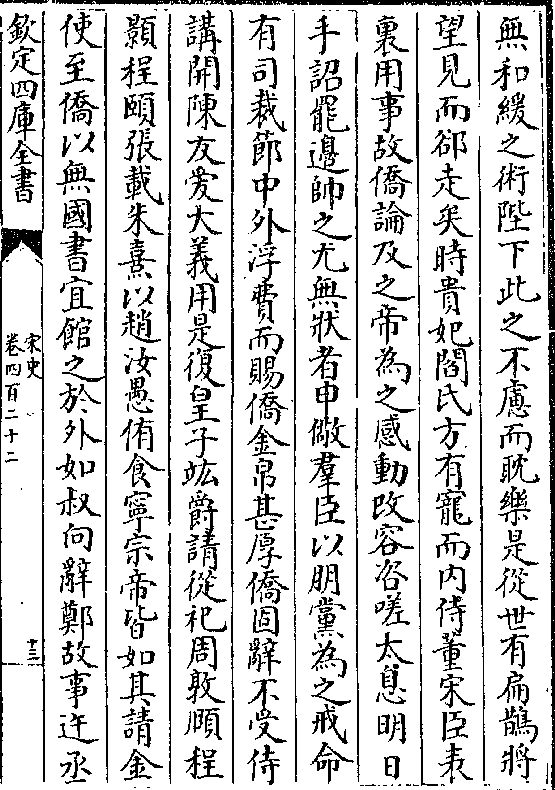 無和緩之術陛下此之不慮而耽樂是從世有扁鵲將
望見而卻走矣時貴妃閻氏方有寵而内侍董宋臣表
裏用事故僑論及之帝為之感動改容咨嗟太息明日
手詔罷邊帥之尤無狀者申儆羣臣以朋黨為之戒命
有司裁節中外浮費而賜僑金帛甚厚僑固辭不受侍
講開陳友愛大義用是復皇子竑爵請從祀周敦頤程
顥程頤張載朱熹以趙汝愚侑食寧宗帝皆如其請金
使至僑以無國書宜館之於外如叔向辭鄭故事迕丞
欽定四庫全書
宋史
卷四百二十二
十三